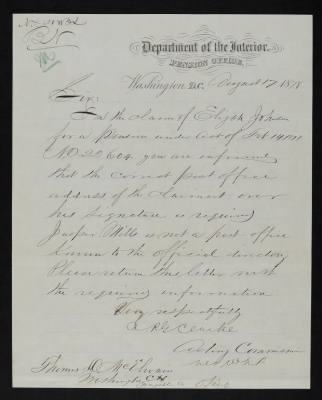 Department of the Interior,
PENSION OFFICE,
Washington, D.C. August 17, 1878
Sir:
In the claim of Elijah Johnson
for a Pension under Act of Feb 14, 1871
No 20,604, you are informed
that the correct post office
address of the claimant over
his signature is required
Jasper Mills is not a post office
known to the official directory
Please return this letter with
the required information
Very respectfully
Clarke
Acting Commissioner
Thomas D. McElwain
Washington C.H.
Ohio